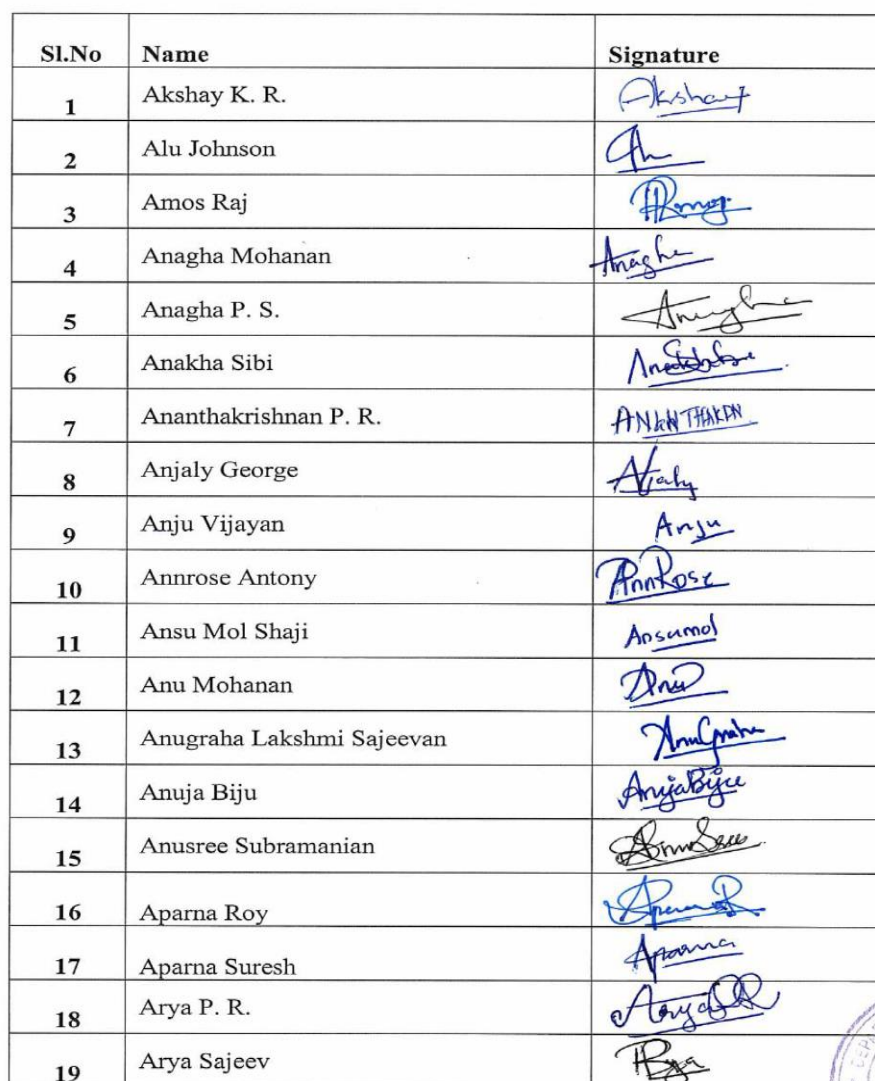 Sl.No Name Signature
1 Akshay K. R. Akshay
2 Alu Johnson
3 Amos Raj
4 Anagha Mohanan Anagha
5 Anagha P. S. Anagha
6 Anakha Sibi
7 Ananthakrishnan P. R.
8 Anjaly George Anjaly
9 Anju Vijayan Anju
10 Annrose Antony AnnRose
11 Ansu Mol Shaji Ansumol
12 Anu Mohanan Anu
13 Anugraha Lakshmi Sajeevan Anugraha
14 Anuja Biju AnujaBiju
15 Anusree Subramanian
16 Aparna Roy
17 Aparna Suresh Aparna
18 Arya P. R.
19 Arya Sajeev